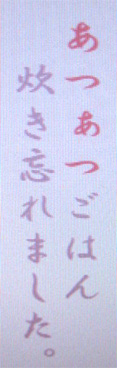 あつあつごはん
炊き忘れました。